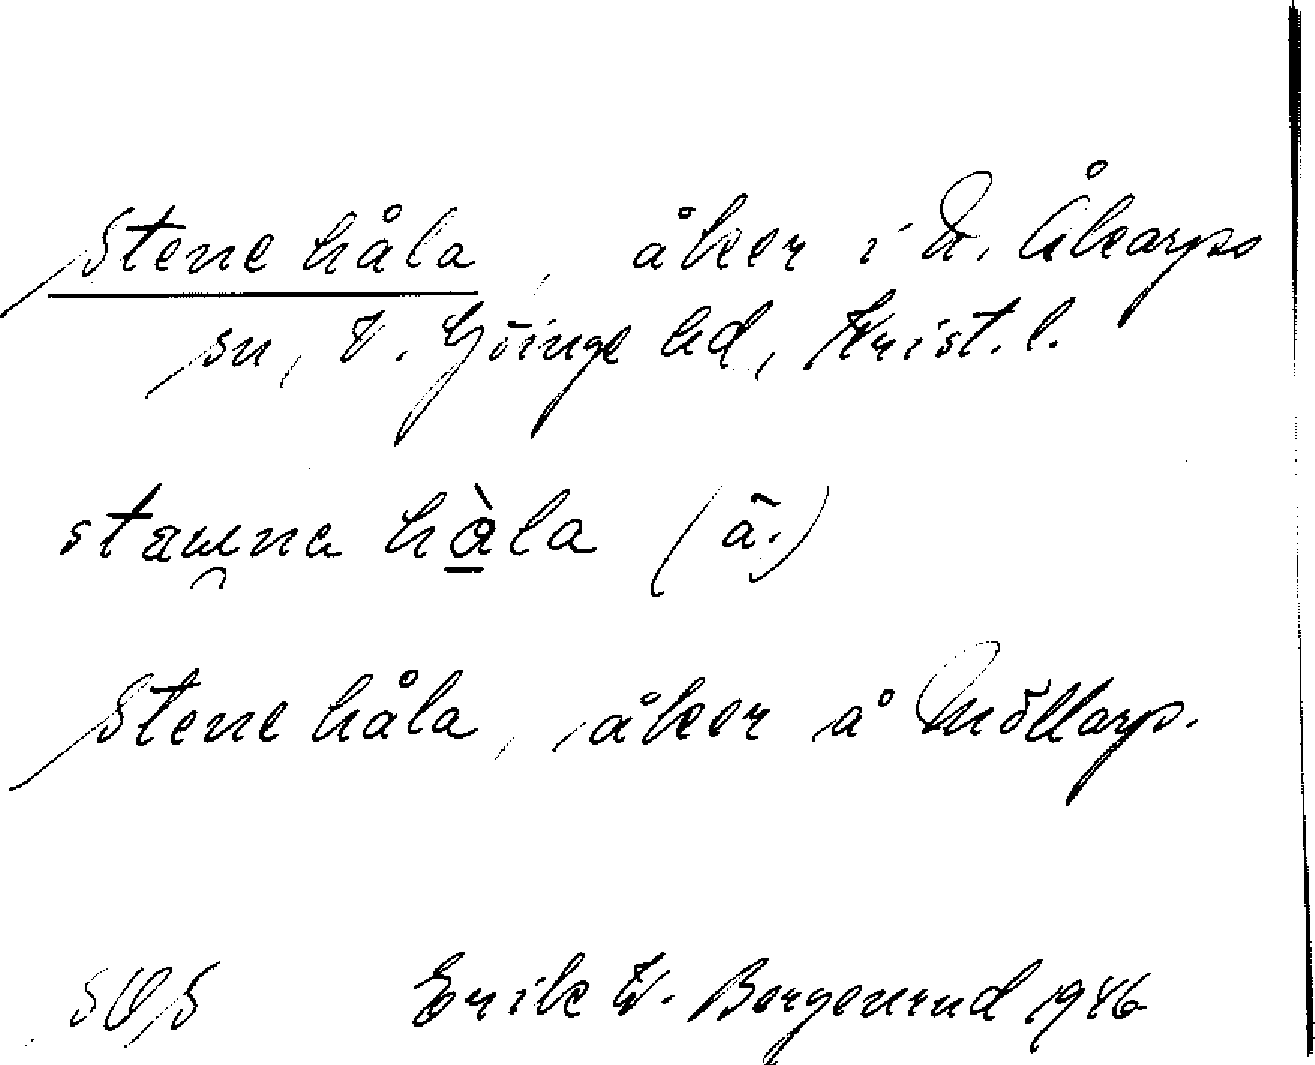 Stenehåla, åker i N. Åkarps
sn, V. Göinge hd, Krist. l.
hàla (ā.)
Stenehåla, åker å Möllarp.
Erik W. Bergenrud 1946